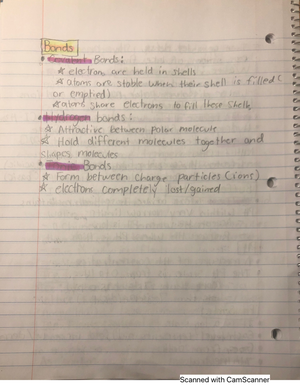 Bonds
• Covalent Bonds:
☆ electrons are held in shells
☆ atoms are stable when their shell is filled (
or emptied)
☆ atoms share electrons to fill these shells
• Hydrogen bonds:
☆ Attractive between polar molecule
☆ Hold different molecules together and
shapes molecules
Bonds
☆ form between charge particles (ions)
☆ electrons completely lost/gained
Scanned with CamScanner